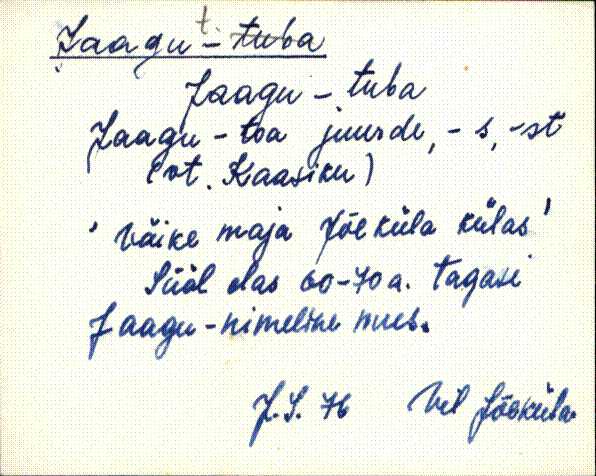 Jaagu-t.tuba
Jaagu-tuba
Jaagu-toa juurde, -s, -st
(vt. Kaasiku)
'väike maja Jõeküla külas'
Siiöl elas 60-70a. tagasi
Jaagu-nimeline mees.
J.S. 76 Vil Jõeküla